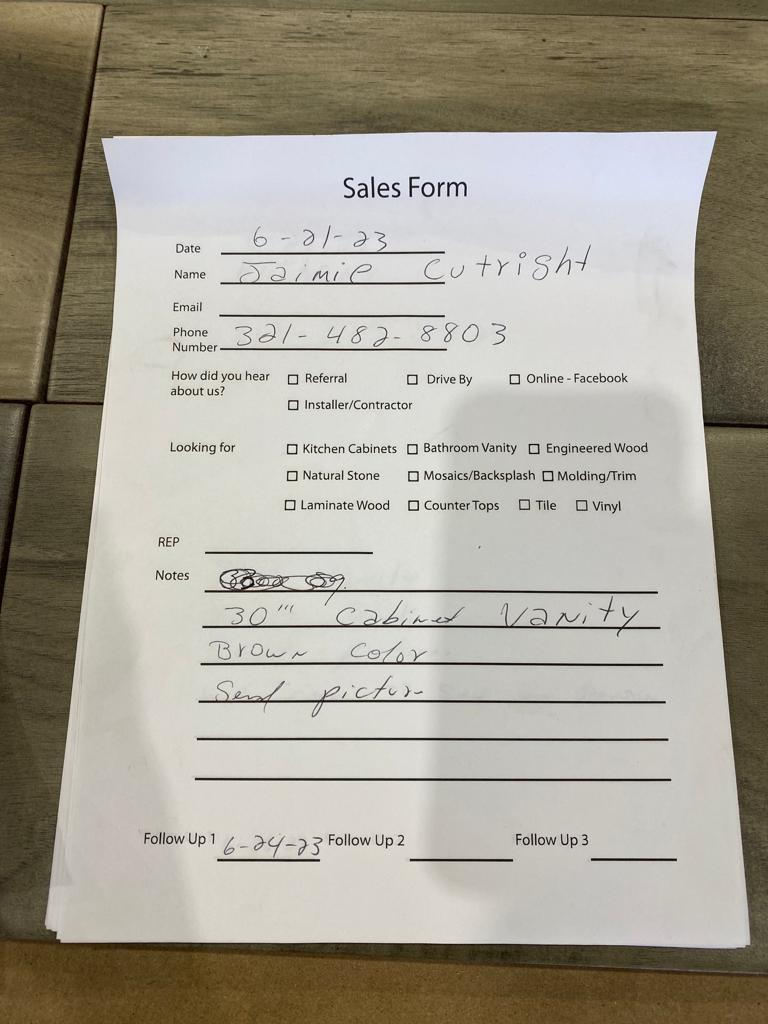 Sales Form
Date 6-21-23
Name Jaimie Cutright
Email
Phone Number 321-482-8803
How did you hear about us? ☐ Referral ☐ Drive By ☐ Online - Facebook
☐ Installer/Contractor
Looking for ☐ Kitchen Cabinets ☐ Bathroom Vanity ☐ Engineered Wood
☐ Natural Stone ☐ Mosaics/Backsplash ☐ Molding/Trim
☐ Laminate Wood ☐ Counter Tops ☐ Tile ☐ Vinyl
REP
Notes
30''' Cabinet Vanity
Brown Color
Send picture
Follow Up 1 6-24-23 Follow Up 2 Follow Up 3